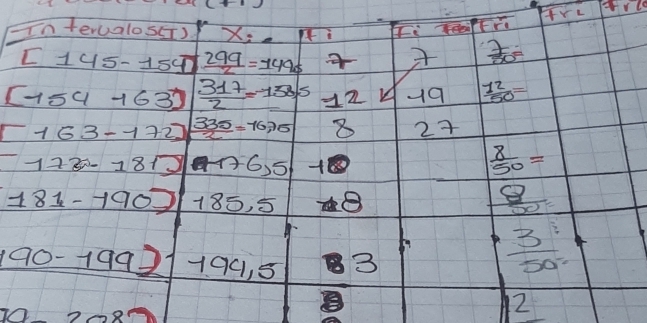 Intervalos(I) Xi fi Fi fri
[145-154] 299/2=149,5 7 7 7/50=
[154-163] 317/2=158,5 12 19 12/50=
[163-172] 335/2=167,5 8 27
172-181] 176,5 10 8/50=
181-190] 185,5 8 8/50=
190-199] 194,5 3 3/50=
208] 2